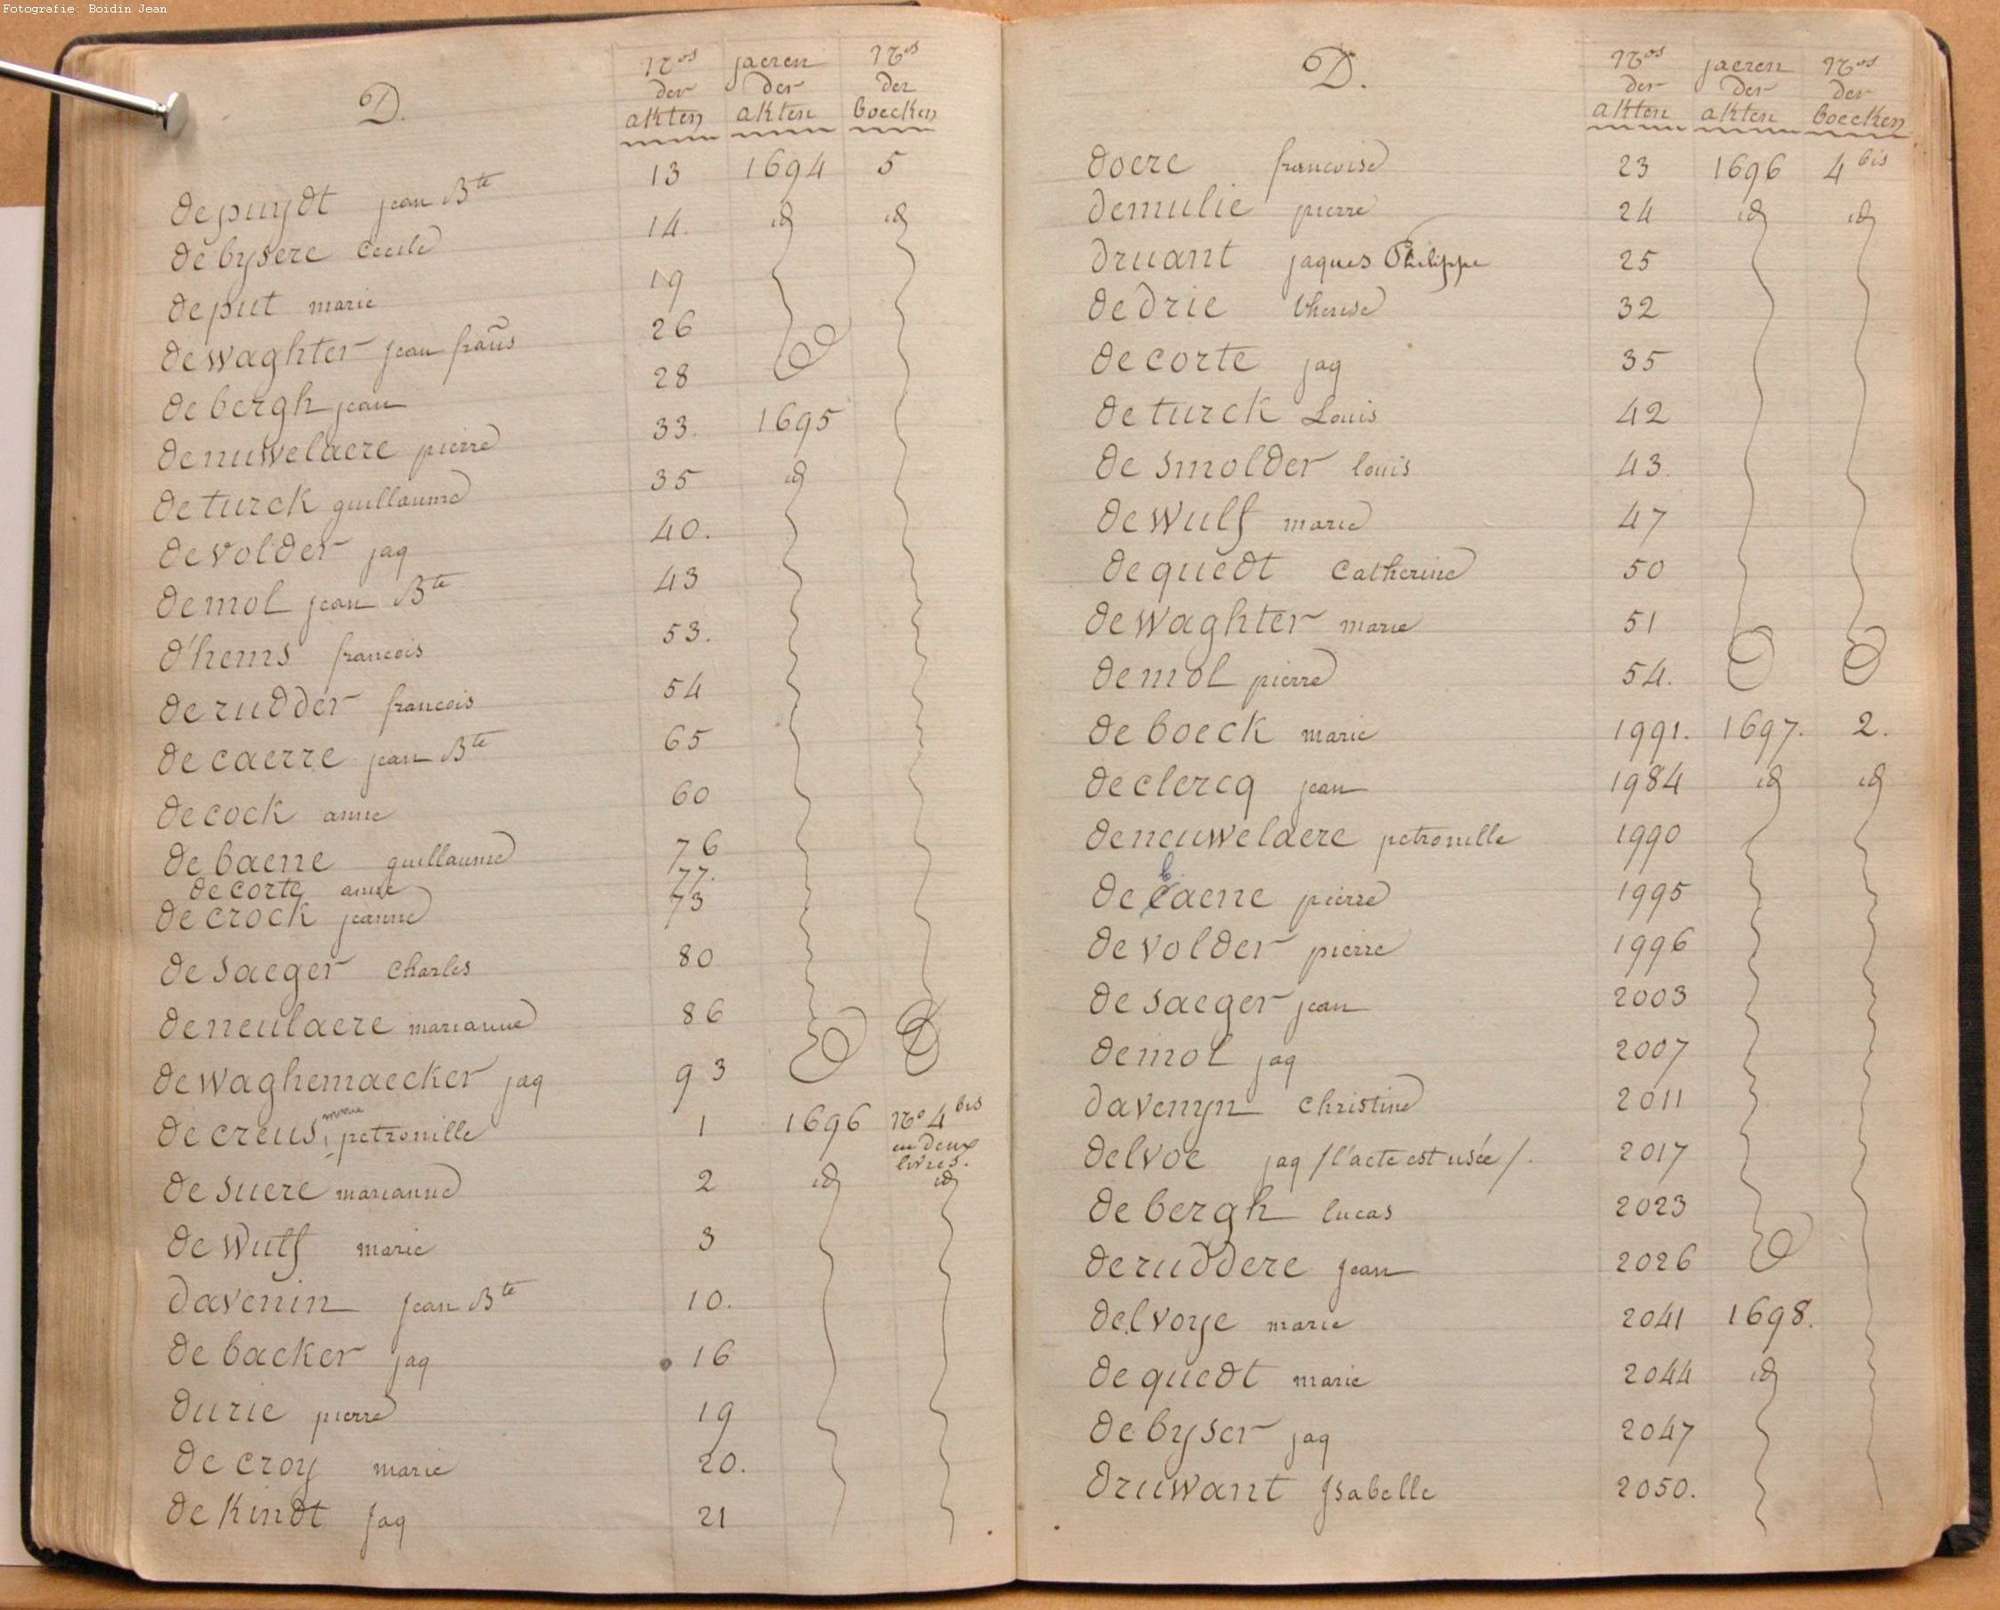 Fotografie: Boidin Jean
D.
Nos der akten
jaeren der akten
Nos der boecken
depuydt jean Bte 13 1694 5
debysere Cecile 14. id id
deput marie 19
dewaghter jean frans 26
debergh jean 28
denuwelaere pierre 33. 1695
deturck guillaume 35 id
devolder jaq 40.
demol jean Bte 43
d'hems francois 53.
derudder francois 54
decaerre jean Bte 65
decock anne 60
debaene guillaume 76
decorte anne 77.
decrock jeanne 73
desaeger Charles 80
deneulaere marianne 86
dewaghemaecker jaq 93
decreus marie petronille 1 1696 No 4 bis
en deux
livres.
desuere marianne 2 id id
dewulf marie 3
davenin jean Bte 10.
debacker jaq 16
durie pierre 19
decroy marie 20.
dekindt jaq 21
D.
Nos der akten
jaeren der akten
Nos der boecken
doere francoise 23 1696 4 bis
demulie pierre 24 id id
druant jaques Philippe 25
dedrie therese 32
decorte jaq 35
deturck Louis 42
desmolder louis 43.
dewulf marie 47
dequedt Catherine 50
dewaghter marie 51
demol pierre 54.
deboeck marie 1991. 1697. 2.
declercq jean 1984 id id
deneuwelaere petronille 1990
debaene pierre 1995
devolder pierre 1996
desaeger jean 2003
demol jaq 2007
davenyn Christine 2011
delvoe jaq /l'acte est usée/. 2017
debergh lucas 2023
deruddere jean 2026
delvoye marie 2041 1698.
dequedt marie 2044 id
debyser jaq 2047
druwant Isabelle 2050.